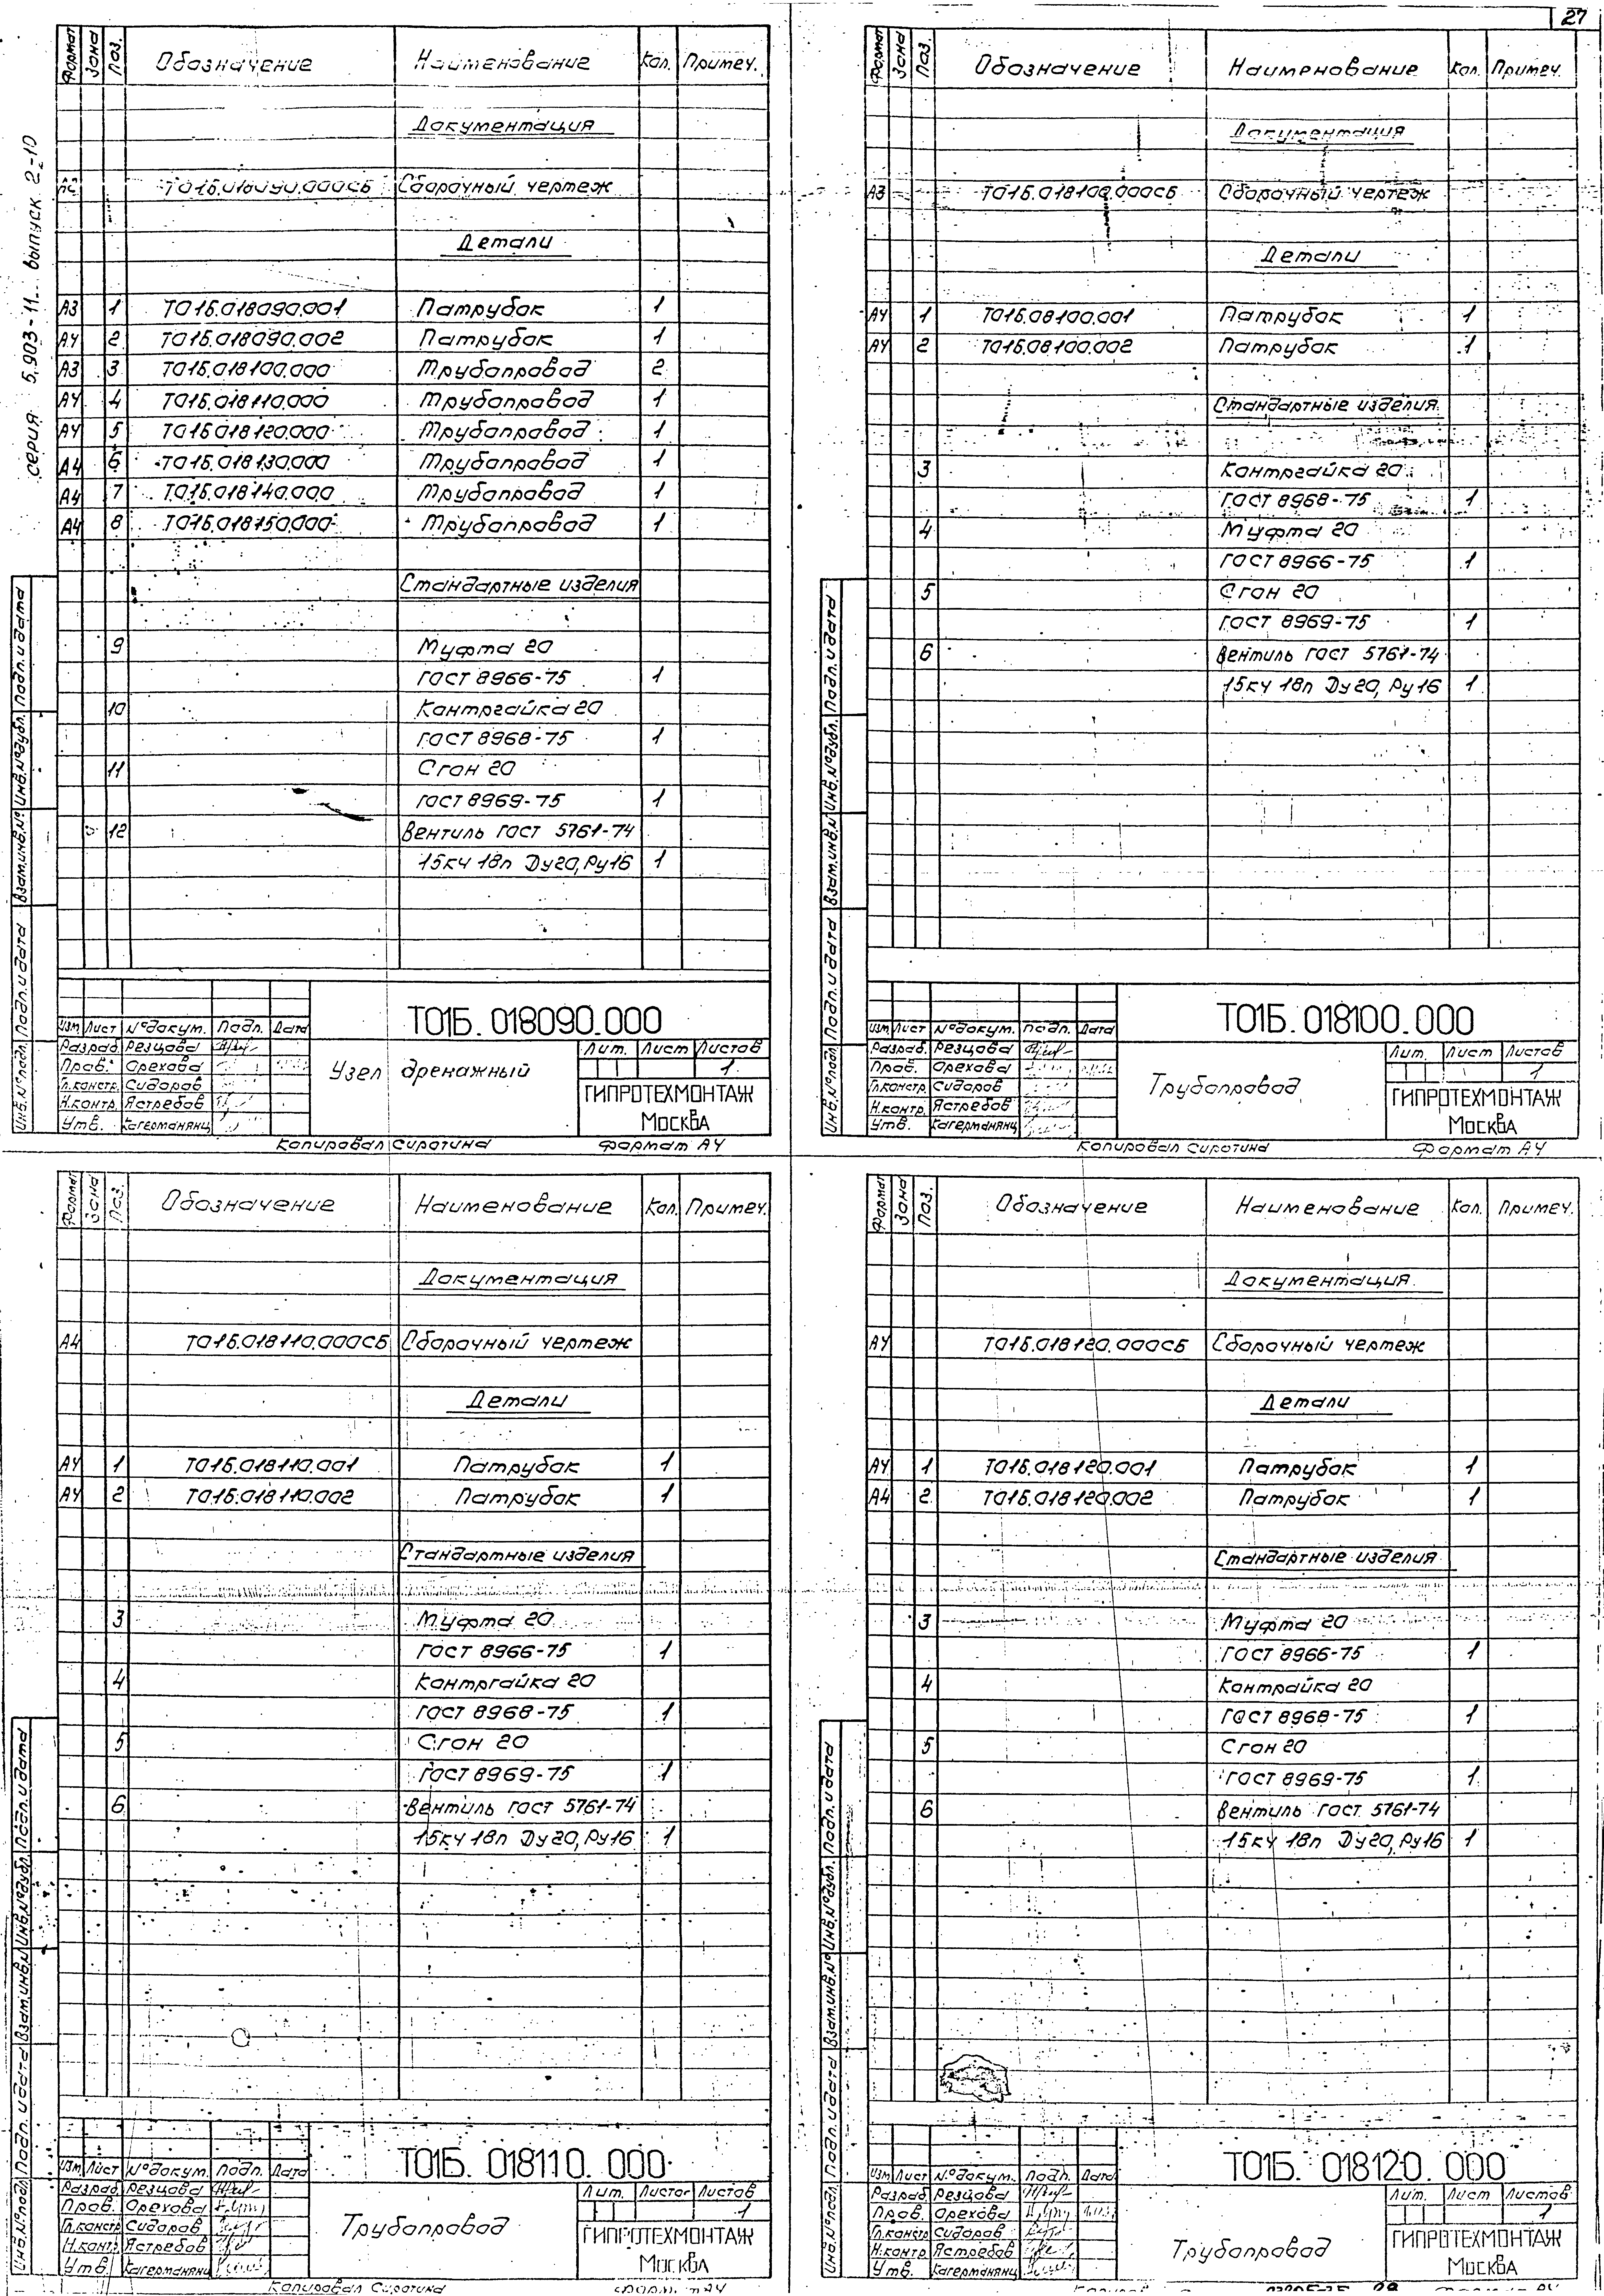 27
серия 5.903-11 выпуск 2-10
Формат Зона Поз. Обозначение Наименование Кол. Примеч.
Документация
Т01Б.018090.000СБ Сборочный чертеж
Детали
А3 1 Т01Б.018090.001 Патрубок 1
А4 2 Т01Б.018090.002 Патрубок 1
А3 3 Т01Б.018100.000 Трубопровод 2
А4 4 Т01Б.018110.000 Трубопровод 1
А4 5 Т01Б.018120.000 Трубопровод 1
А4 6 Т01Б.018130.000 Трубопровод 1
А4 7 Т01Б.018140.000 Трубопровод 1
А4 8 Т01Б.018150.000 Трубопровод 1
Стандартные изделия
9 Муфта 20
ГОСТ 8966-75 1
10 Контргайка 20
ГОСТ 8968-75 1
11 Сгон 20
ГОСТ 8969-75 1
12 Вентиль ГОСТ 5761-74
15кч 18п Ду20, Ру16 1
Инв.№подл. Подп. и дата Взам.инв.№ Инв.№дубл. Подп. и дата
Т01Б. 018090.000
Изм. Лист №докум. Подп. Дата
Разраб. Резцова
Пров. Орехова
Гл.констр. Сидоров
Н.контр. Ястребов
Утв. Кагерманянц
Узел дренажный
Лит. Лист Листов
1
ГИПРОТЕХМОНТАЖ
Москва
Копировал Сиротина Формат А4
Формат Зона Поз. Обозначение Наименование Кол. Примеч.
Документация
А3 Т01Б.018100.000СБ Сборочный чертеж
Детали
А4 1 Т01Б.08100.001 Патрубок 1
А4 2 Т01Б.08100.002 Патрубок 1
Стандартные изделия
3 Контргайка 20
ГОСТ 8968-75 1
4 Муфта 20
ГОСТ 8966-75 1
5 Сгон 20
ГОСТ 8969-75 1
6 Вентиль ГОСТ 5761-74
15кч 18п Ду20, Ру16 1
Инв.№подл. Подп. и дата Взам.инв.№ Инв.№дубл. Подп. и дата
Т01Б. 018100.000
Изм. Лист №докум. Подп. Дата
Разраб. Резцова
Пров. Орехова
Гл.констр. Сидоров
Н.контр. Ястребов
Утв. Кагерманянц
Трубопровод
Лит. Лист Листов
1
ГИПРОТЕХМОНТАЖ
Москва
Копировал Сиротина Формат А4
Формат Зона Поз. Обозначение Наименование Кол. Примеч.
Документация
А4 Т01Б.018110.000СБ Сборочный чертеж
Детали
А4 1 Т01Б.018110.001 Патрубок 1
А4 2 Т01Б.018110.002 Патрубок 1
Стандартные изделия
3 Муфта 20
ГОСТ 8966-75 1
4 Контргайка 20
ГОСТ 8968-75 1
5 Сгон 20
ГОСТ 8969-75 1
6 Вентиль ГОСТ 5761-74
15кч 18п Ду20, Ру16 1
Инв.№подл. Подп. и дата Взам.инв.№ Инв.№дубл. Подп. и дата
Т01Б. 018110. 000
Изм. Лист №докум. Подп. Дата
Разраб. Резцова
Пров. Орехова
Гл.констр. Сидоров
Н.контр. Ястребов
Утв. Кагерманянц
Трубопровод
Лит. Листог Листов
1
ГИПРОТЕХМОНТАЖ
Москва
Копировал Сиротина
Формат Зона Поз. Обозначение Наименование Кол. Примеч.
Документация
А4 Т01Б.018120.000СБ Сборочный чертеж
Детали
А4 1 Т01Б.018120.001 Патрубок 1
А4 2 Т01Б.018120.002 Патрубок 1
Стандартные изделия
3 Муфта 20
ГОСТ 8966-75 1
4 Контрайка 20
ГОСТ 8968-75 1
5 Сгон 20
ГОСТ 8969-75 1
6 Вентиль ГОСТ 5761-74
15кч 18п Ду20, Ру16 1
Инв.№подл. Подп. и дата Взам.инв.№ Инв.№дубл. Подп. и дата
Т01Б. 018120. 000
Изм. Лист №докум. Подп. Дата
Разраб. Резцова
Пров. Орехова
Гл.констр. Сидоров
Н.контр. Ястребов
Утв. Кагерманянц
Трубопровод
Лит. Лист Листов
1
ГИПРОТЕХМОНТАЖ
Москва